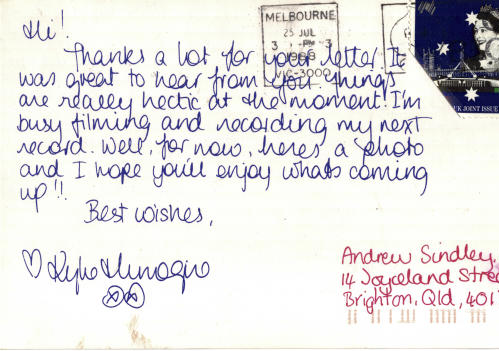 Hi!
Thanks a lot for your letter. It
was great to hear from you. things
are really hectic at the moment! I'm
busy filming and recording my next
record. Well, for now, here's a photo
and I hope you'll enjoy whats coming
up!!
Best wishes,
Kylie Minogue
MELBOURNE
25 JUL
3 PM 3
VIC-3000
UK JOINT ISSUE
Andrew Sindley,
14 Joyceland Stree
Brighton, Qld, 401